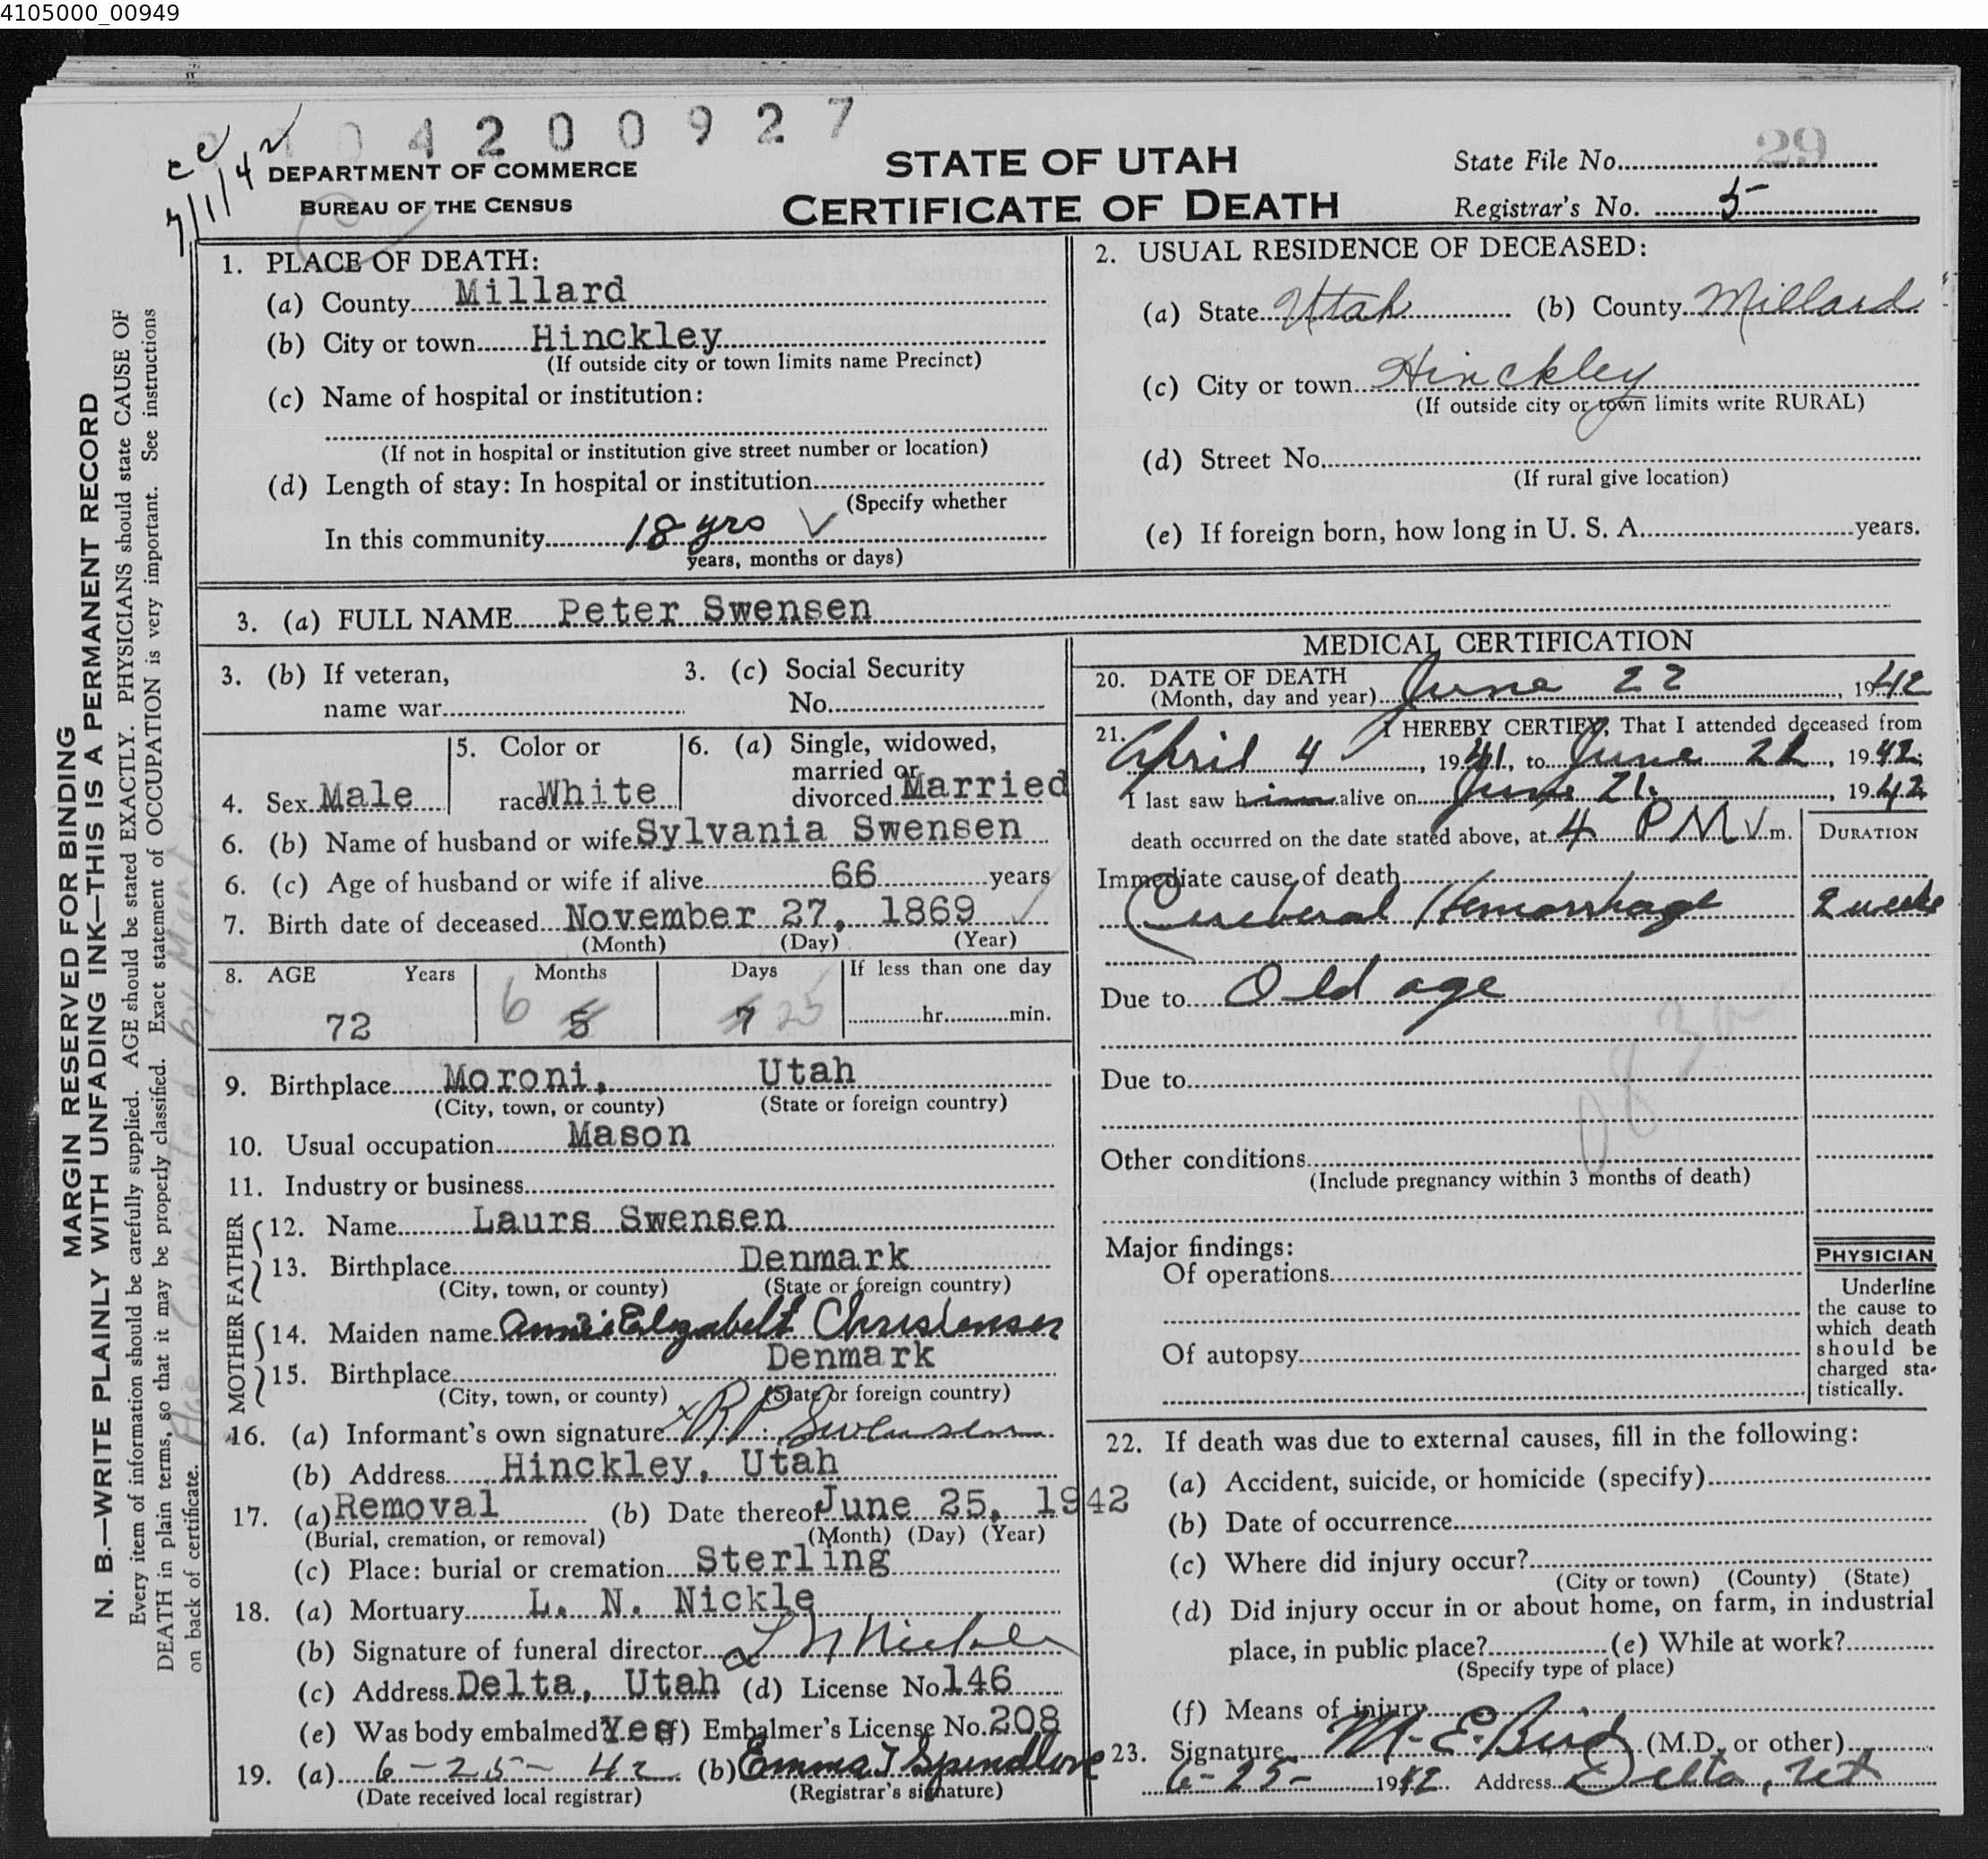 4105000_00949
04200927
7/1/42
29
DEPARTMENT OF COMMERCE
BUREAU OF THE CENSUS
STATE OF UTAH
CERTIFICATE OF DEATH
State File No.
Registrar's No. 5
MARGIN RESERVED FOR BINDING
N. B.—WRITE PLAINLY WITH UNFADING INK—THIS IS A PERMANENT RECORD
Every item of information should be carefully supplied. AGE should be stated EXACTLY. PHYSICIANS should state CAUSE OF
DEATH in plain terms, so that it may be properly classified. Exact statement of OCCUPATION is very important. See instructions
on back of certificate.
1. PLACE OF DEATH:
(a) County Millard
(b) City or town Hinckley
(If outside city or town limits name Precinct)
(c) Name of hospital or institution:
(If not in hospital or institution give street number or location)
(d) Length of stay: In hospital or institution
(Specify whether
In this community 18 yrs
years, months or days)
2. USUAL RESIDENCE OF DECEASED:
(a) State Utah (b) County Millard
(c) City or town Hinckley
(If outside city or town limits write RURAL)
(d) Street No.
(If rural give location)
(e) If foreign born, how long in U. S. A. years.
3. (a) FULL NAME Peter Swensen
3. (b) If veteran,
name war
3. (c) Social Security
No.
4. Sex Male
5. Color or
race White
6. (a) Single, widowed,
married or
divorced Married
6. (b) Name of husband or wife Sylvania Swensen
6. (c) Age of husband or wife if alive 66 years
7. Birth date of deceased November 27, 1869
(Month) (Day) (Year)
8. AGE Years Months Days If less than one day
72 6 5 7 25 hr. min.
9. Birthplace Moroni, Utah
(City, town, or county) (State or foreign country)
10. Usual occupation Mason
11. Industry or business
FATHER
12. Name Laurs Swensen
13. Birthplace Denmark
(City, town, or county) (State or foreign country)
MOTHER
14. Maiden name Annie Elizabeth Christensen
15. Birthplace Denmark
(City, town, or county) (State or foreign country)
16. (a) Informant's own signature x R P Swensen
(b) Address Hinckley, Utah
17. (a) Removal (b) Date thereof June 25, 1942
(Burial, cremation, or removal) (Month) (Day) (Year)
(c) Place: burial or cremation Sterling
18. (a) Mortuary L. N. Nickle
(b) Signature of funeral director L N Nickle
(c) Address Delta, Utah (d) License No. 146
(e) Was body embalmed? Yes (f) Embalmer's License No. 208
19. (a) 6-25-42 (b) Emma T Spendlove
(Date received local registrar) (Registrar's signature)
MEDICAL CERTIFICATION
20. DATE OF DEATH
(Month, day and year) June 22, 1942
21. I HEREBY CERTIFY, That I attended deceased from
April 4, 1941, to June 22, 1942;
I last saw him alive on June 21, 1942
death occurred on the date stated above, at 4 P M m.
DURATION
Immediate cause of death
Cerebral Hemorrhage 2 weeks
Due to Old age
Due to
Other conditions
(Include pregnancy within 3 months of death)
Major findings:
Of operations
Of autopsy
PHYSICIAN
Underline
the cause to
which death
should be
charged sta-
tistically.
22. If death was due to external causes, fill in the following:
(a) Accident, suicide, or homicide (specify)
(b) Date of occurrence
(c) Where did injury occur?
(City or town) (County) (State)
(d) Did injury occur in or about home, on farm, in industrial
place, in public place? (e) While at work?
(Specify type of place)
(f) Means of injury
23. Signature M. E. Bird (M.D. or other)
6-25- 1942 Address Delta, Ut